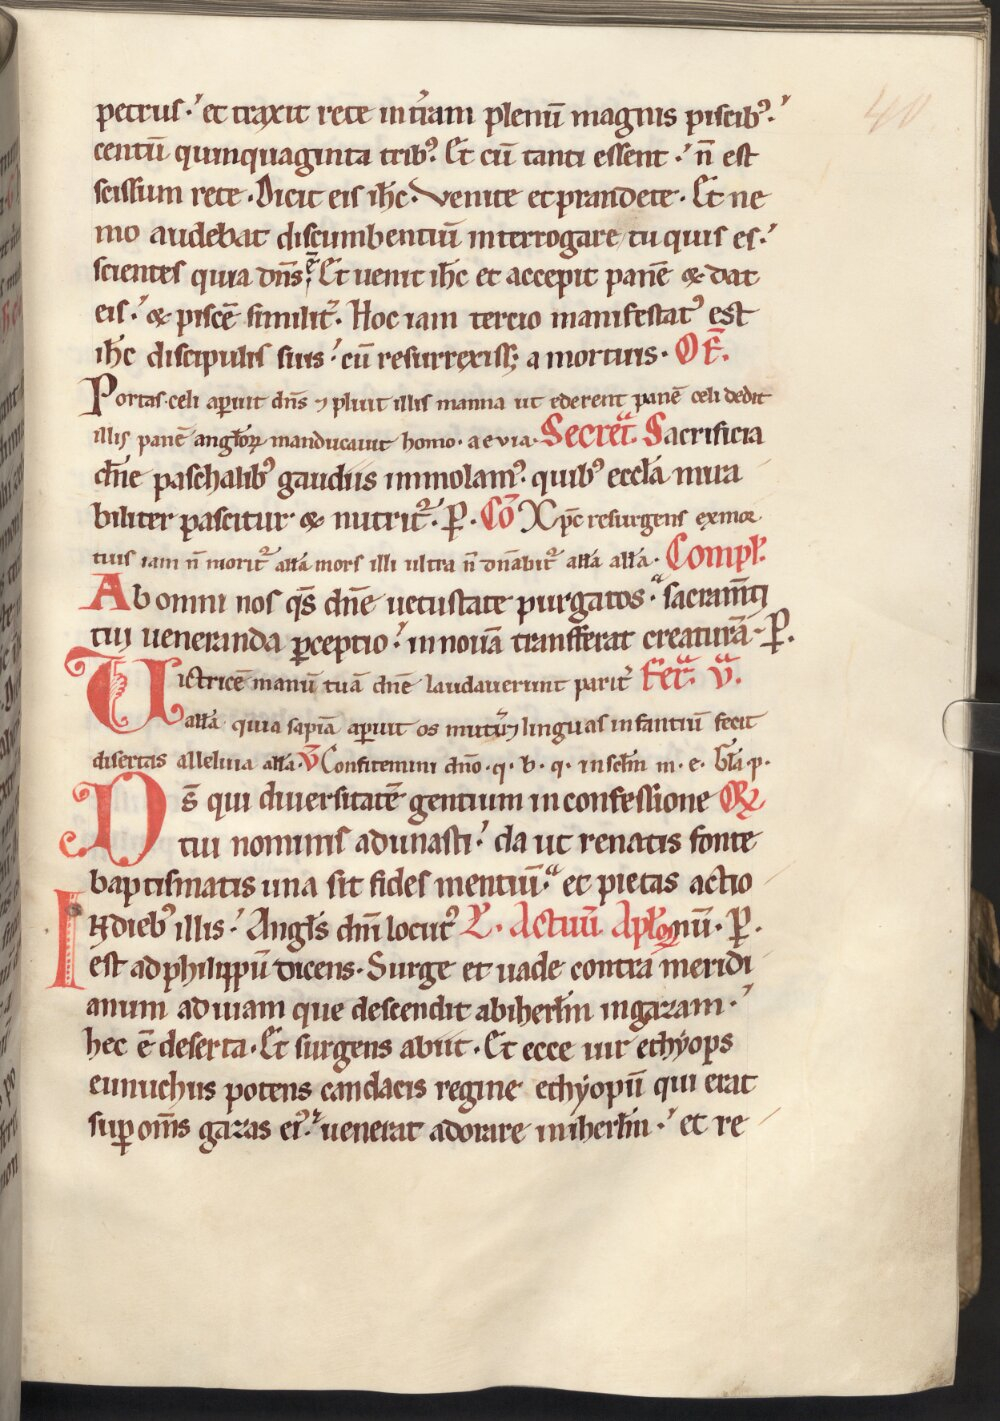 petrus. et traxit rete in t̄ram plenū magnis piscib⁹.
centū quinquaginta trib⁹. Et cū tanti essent. n̄ est
scissum rete. Dicit eis ih̄c. Venite et prandete. Et ne
mo audebat discumbentiū interrogare tu quis es.
scientes quia dn̄s ē. Et uenit ih̄c et accepit panē & dat
eis. & piscē similit̄. Hoc iam tercio manifestat⁹ est
ih̄c discipulis suis. cū resurrexiss; a mortuis. OF̄.
Portas celi aꝑuit dn̄s ⁊ pluit illis manna ut ederent panē celi dedit
illis panē angl̄oꝝ manducauit homo. aeuia. Secret̄a. Sacrificia
dn̄e paschalib⁹ gaudiis immolam⁹. quib⁹ eccl̄a mira
biliter pascitur & nutrit̄. P̄. Cō Xp̄c resurgens ex mor
tuis iam n̄ morit̄ all̄a mors illi ultra n̄ dn̄abit̄ all̄a all̄a. Compl̄.
Ab omni nos q̄s dn̄e uetustate purgatos. sacram̄ti
tui ueneranda ꝑceptio. in nouā transferat creaturā. P̄.
Uictricē manū tuā dn̄e laudauerunt parit̄ Fer̄a. v̄a.
all̄a quia sapīa aꝑuit os mutū ⁊ linguas infantiū fecit
disertas alleluia all̄a. V̄ Confitemini dn̄o. q. b. q. in sēl̄m m. e. Gl̄a. p.
Ds̄ qui diuersitatē gentium in confessione OR̄
tui nominis adunasti. da ut renatis fonte
baptismatis una sit fides mentiū. et pietas actio
In dieb⁹ illis. Angl̄s dn̄i locut⁹ L̄. Actuū Apl̄oꝝ nū. P̄.
est ad philippū dicens. Surge et uade contra meridi
anum ad uiam que descendit ab iherl̄m in gazam.
hec ē deserta. Et surgens abiit. Et ecce uir ethyops
eunuchus potens candacis regine ethyopū qui erat
suꝑ om̄s gazas ei⁹. uenerat adorare in iherl̄m. et re